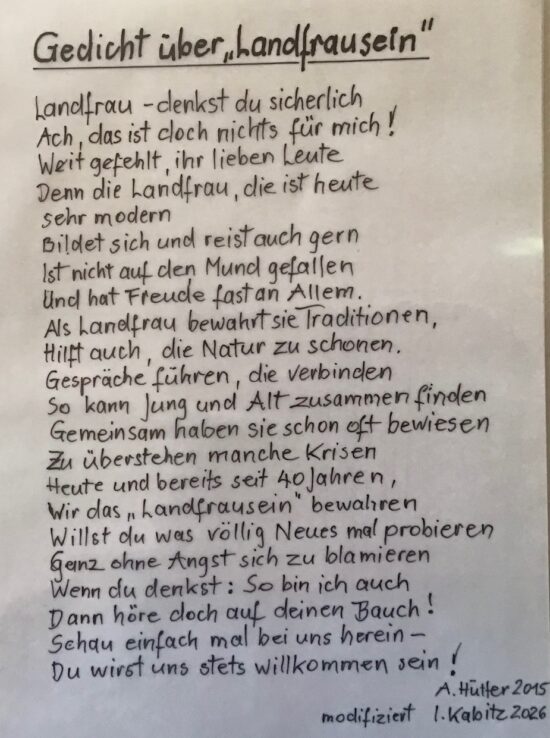 Gedicht über „Landfrausein"
Landfrau - denkst du sicherlich
Ach, das ist doch nichts für mich!
Weit gefehlt, ihr lieben Leute
Denn die Landfrau, die ist heute
sehr modern
Bildet sich und reist auch gern
Ist nicht auf den Mund gefallen
Und hat Freude fast an Allem.
Als Landfrau bewahrt sie Traditionen,
Hilft auch, die Natur zu schonen.
Gespräche führen, die verbinden
So kann Jung und Alt zusammen finden
Gemeinsam haben sie schon oft bewiesen
Zu überstehen manche Krisen
Heute und bereits seit 40 Jahren,
Wir das „Landfrausein" bewahren
Willst du was völlig Neues mal probieren
Ganz ohne Angst sich zu blamieren
Wenn du denkst: So bin ich auch
Dann höre doch auf deinen Bauch!
Schau einfach mal bei uns herein -
Du wirst uns stets willkommen sein!
A. Hütter 2015
modifiziert I. Kabitz 2026